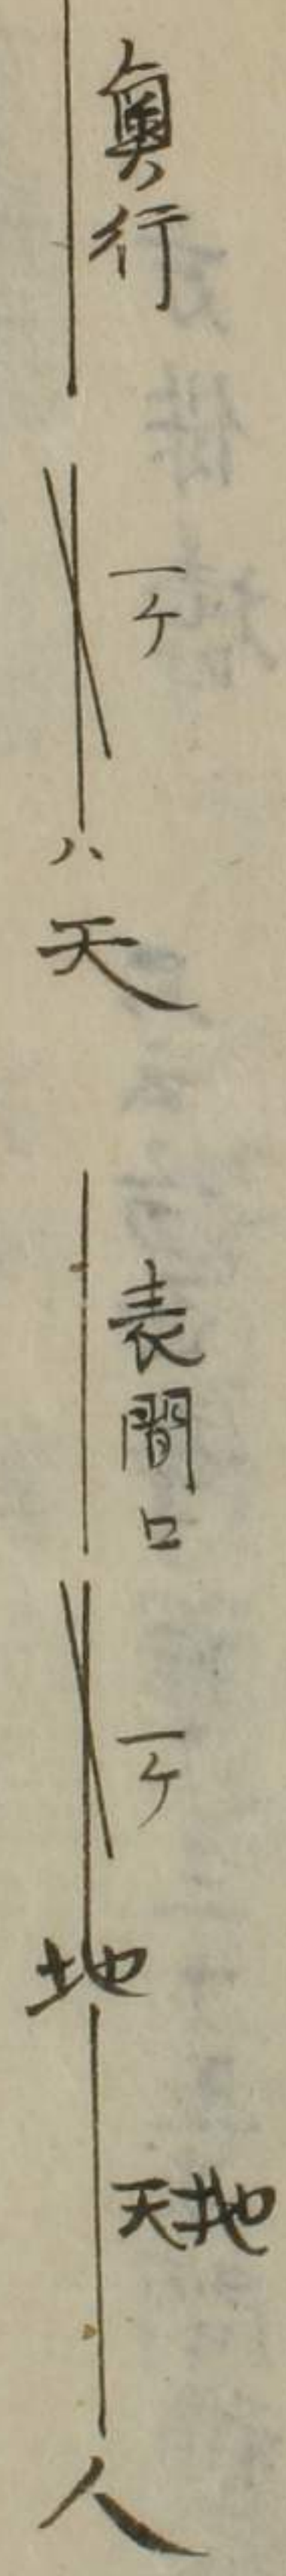 奥行
一ケ
ハ
天
表間口
一ケ
地
天地
人